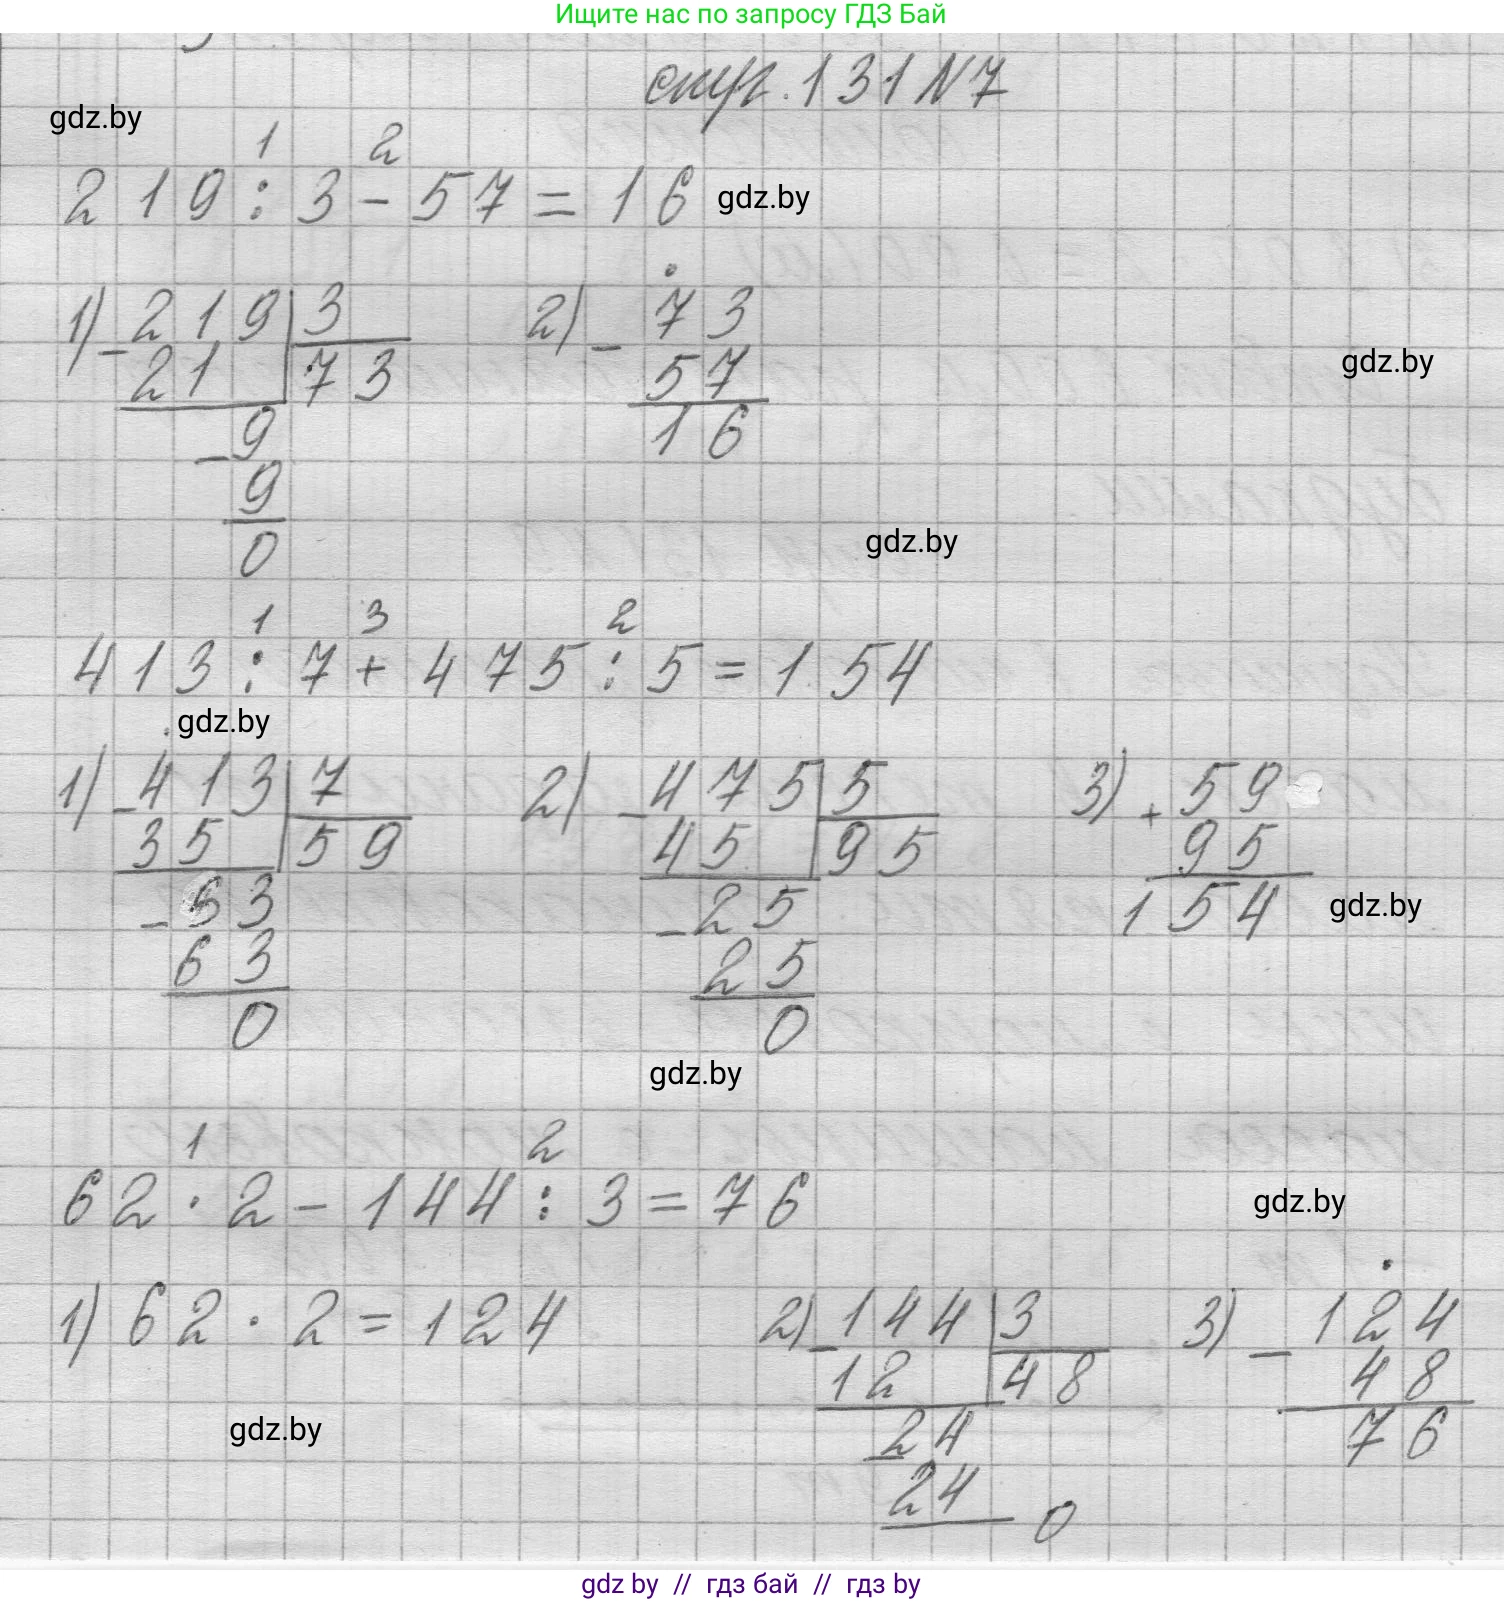 Ищите нас по запросу ГДЗ Бай
стр. 131 N 7
gdz.by
1 2
219 : 3 - 57 = 16 gdz.by
1) - 219 | 3 2) - 73
21 73 57 gdz.by
- 9 16
9
0 gdz.by
1 3 2
413 : 7 + 475 : 5 = 154
gdz.by
1) - 413 | 7 2) - 475 | 5 3) + 59
35 59 45 95 95
- 63 - 25 154 gdz.by
63 25
0 0
gdz.by
1 2
62 · 2 - 144 : 3 = 76 gdz.by
1) 62 · 2 = 124 2) - 144 | 3 3) - 124
12 48 48
gdz.by - 24 76
24 0
gdz by // гдз бай // гдз by